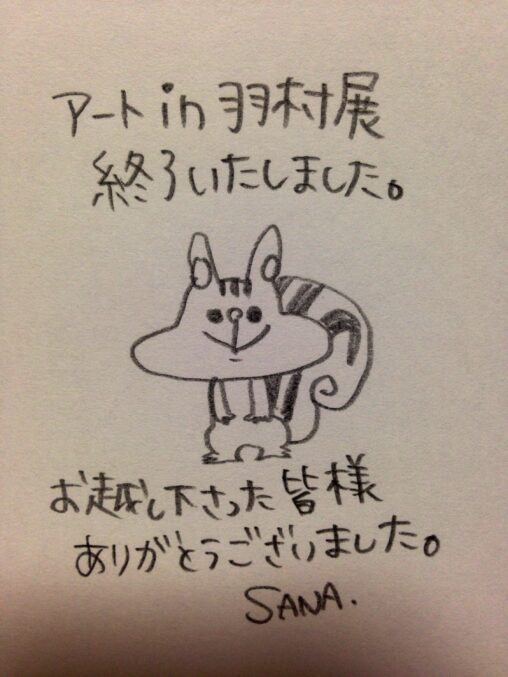 アート in 羽村展
終了いたしました。
お越し下さった皆様
ありがとうございました。
SANA.